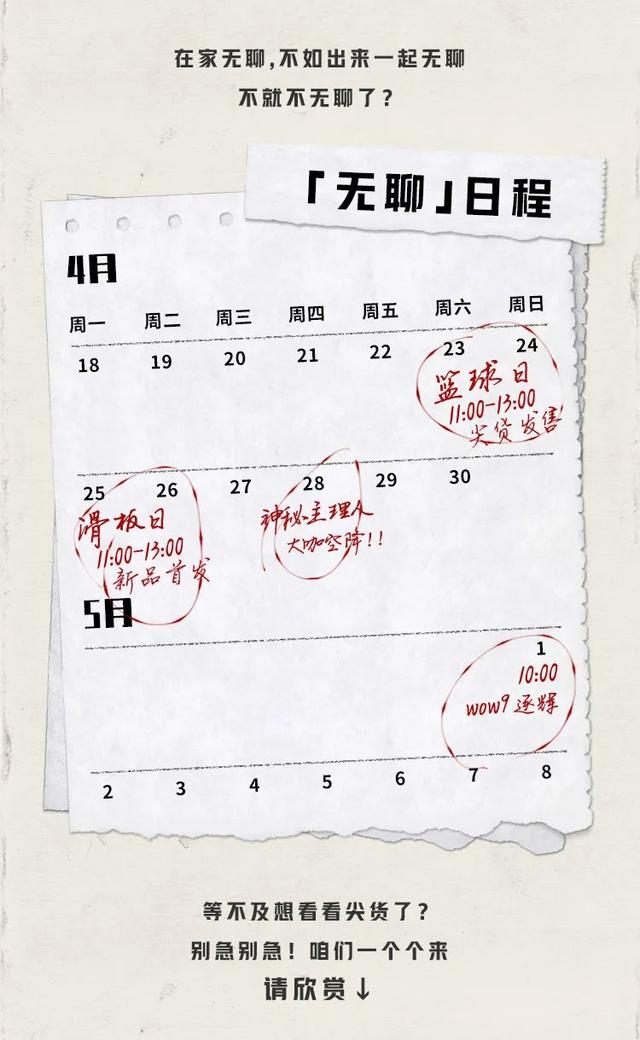 在家无聊,不如出来一起无聊
不就不无聊了？
「无聊」日程
4月
周一 周二 周三 周四 周五 周六 周日
18 19 20 21 22 23 24
篮球日
11:00-13:00
尖货发售
25 26 27 28 29 30
滑板日
11:00-13:00
新品首发
神秘主理人
大咖空降!!
5月
1
10:00
wow9逐辉
2 3 4 5 6 7 8
等不及想看看尖货了？
别急别急！咱们一个个来
请欣赏↓